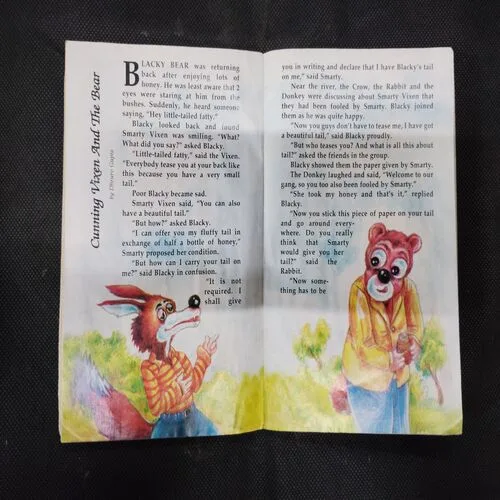 Cunning Vixen And The Bear
BLACKY BEAR was returning
back after enjoying lots of
honey. He was least aware that 2
eyes were staring at him from the
bushes. Suddenly, he heard someone
saying, "Hey little-tailed fatty."
Blacky looked back and found
Smarty Vixen was smiling. "What?
What did you say?" asked Blacky.
"Little-tailed fatty," said the Vixen.
"Everybody tease you at your back like
this because you have a very small
tail."
Poor Blacky became sad.
Smarty Vixen said, "You can also
have a beautiful tail."
"But how?" asked Blacky.
"I can offer you my fluffy tail in
exchange of half a bottle of honey,"
Smarty proposed her condition.
"But how can I carry your tail on
me?" said Blacky in confusion.
"It is not
required. I
shall give
you in writing and declare that I have Blacky's tail
on me," said Smarty.
Near the river, the Crow, the Rabbit and the
Donkey were discussing about Smarty Vixen that
they had been fooled by Smarty. Blacky joined
them as he was quite happy.
"Now you guys don't have to tease me, I have got
a beautiful tail," said Blacky proudly.
"But who teases you? And what is all this about
tail?" asked the friends in the group.
Blacky showed them the paper given by Smarty.
The Donkey laughed and said, "Welcome to our
gang, so you too also been fooled by Smarty."
"She took my honey and that's it," replied
Blacky.
"Now you stick this piece of paper on your tail
and go around every-
where. Do you really
think that Smarty
would give you her
tail?" said the
Rabbit.
"Now some-
thing has to be